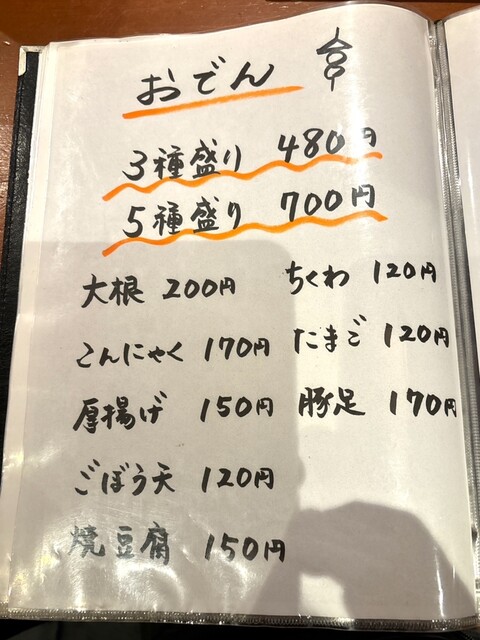 おでん
3種盛り 480円
5種盛り 700円
大根 200円
こんにゃく 170円
厚揚げ 150円
ごぼう天 120円
焼豆腐 150円
ちくわ 120円
たまご 120円
豚足 170円